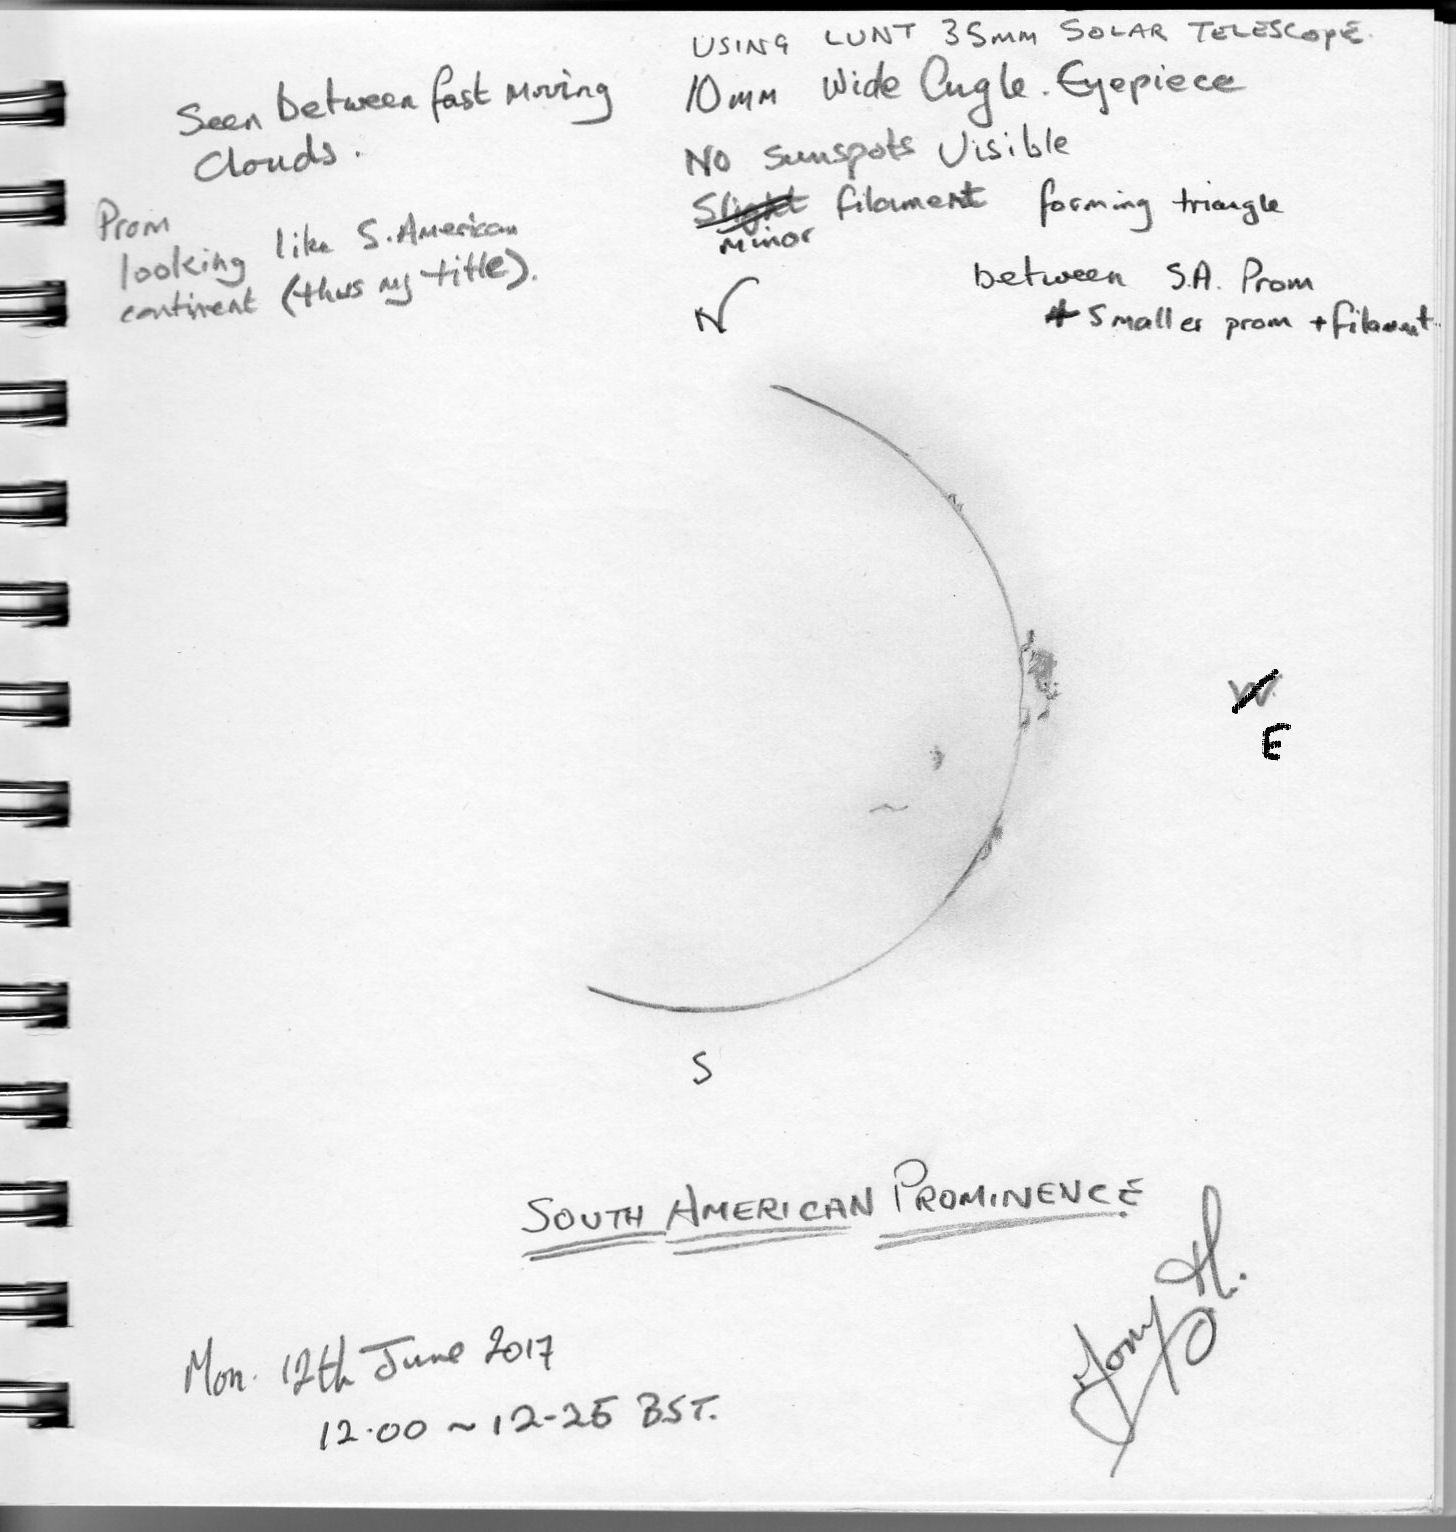 USING LUNT 35mm SOLAR TELESCOPE.
10mm Wide Angle. Eyepiece
No Sunspots Visible
Slight filament forming triangle
minor
between S.A. Prom
+ Smaller prom + filament.
Seen between fast moving
Clouds.
Prom
looking like S. American
continent (thus my title).
N
W
E
S
SOUTH AMERICAN PROMINENCE
Tony H.
Mon. 12th June 2017
12.00 ~ 12-25 BST.